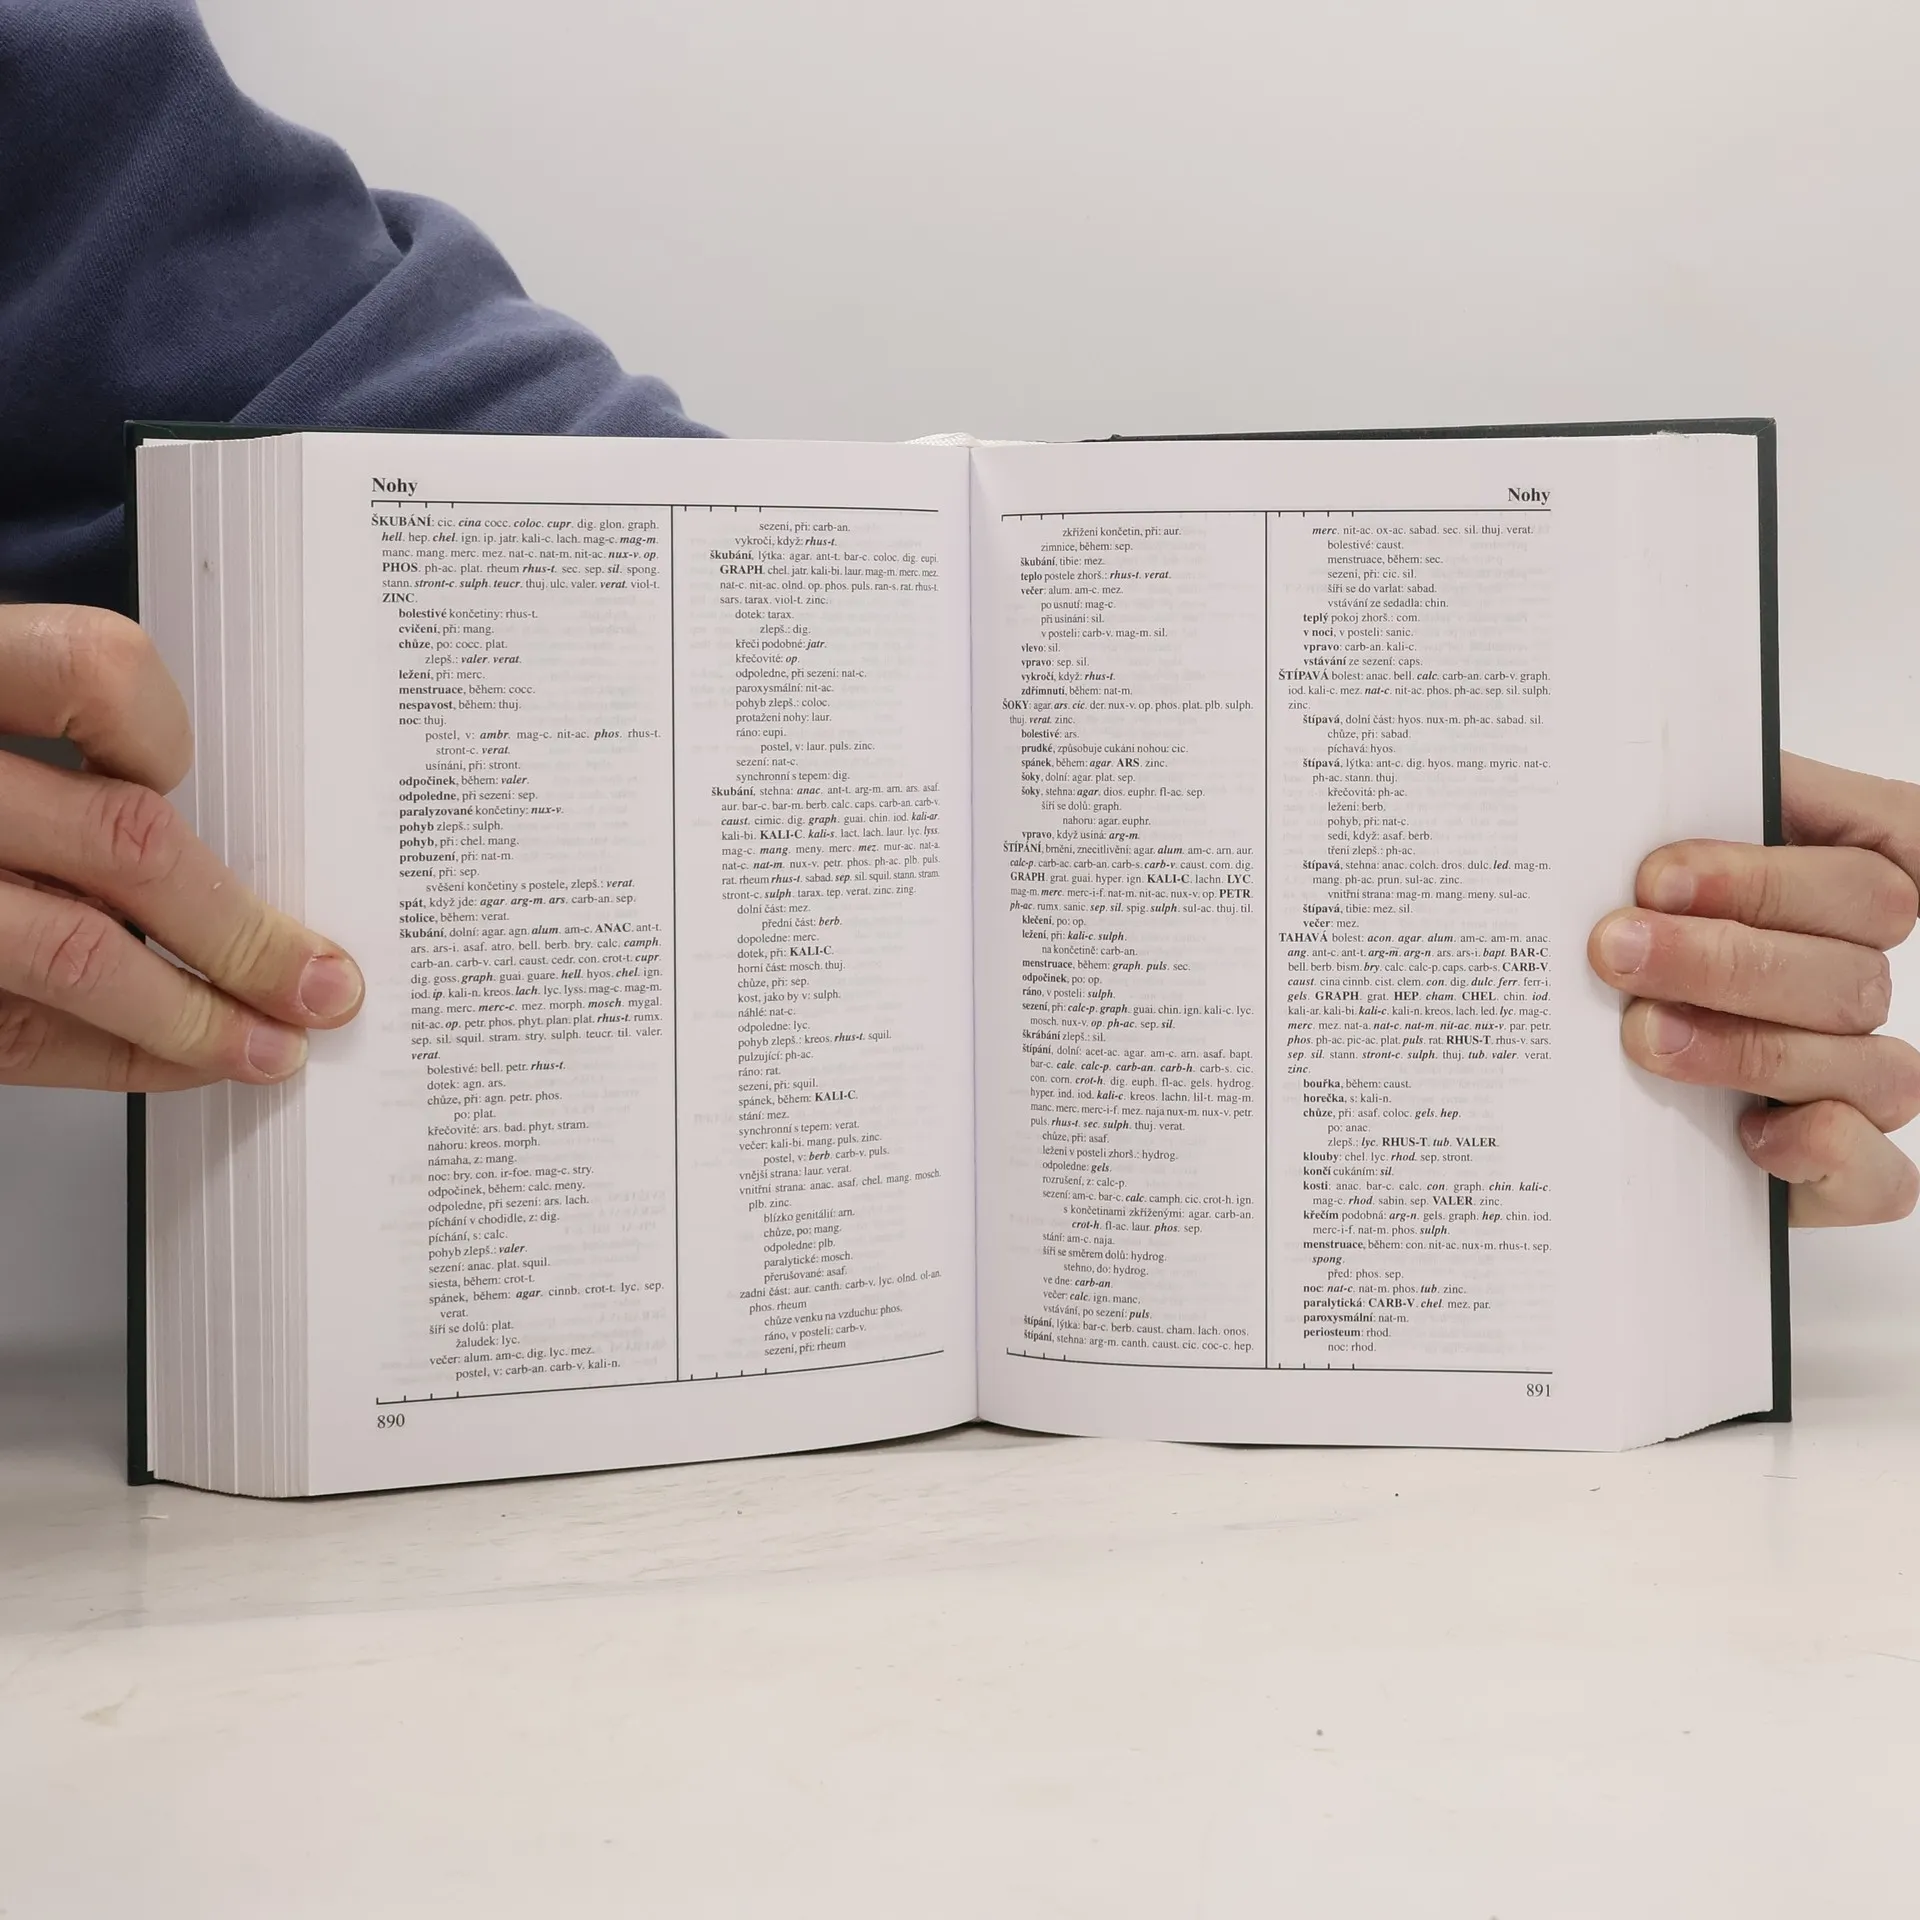 Nohy
ŠKUBÁNÍ: cic. cina cocc. coloc. cupr. dig. glon. graph.
hell. hep. chel. ign. ip. jatr. kali-c. lach. mag-c. mag-m.
manc. mang. merc. mez. nat-c. nat-m. nit-ac. nux-v. op.
PHOS. ph-ac. plat. rheum rhus-t. sec. sep. sil. spong.
stann. stront-c. sulph. teucr. thuj. ulc. valer. verat. viol-t.
ZINC.
bolestivé končetiny: rhus-t.
cvičení, při: mang.
chůze, po: cocc. plat.
zlepš.: valer. verat.
ležení, při: merc.
menstruace, během: cocc.
nespavost, během: thuj.
noc: thuj.
postel, v: ambr. mag-c. nit-ac. phos. rhus-t.
stront-c. verat.
usínání, při: stront.
odpočinek, během: valer.
odpoledne, při sezení: sep.
paralyzované končetiny: nux-v.
pohyb zlepš.: sulph.
pohyb, při: chel. mang.
probuzení, při: nat-m.
sezení, při: sep.
svěšení končetiny s postele, zlepš.: verat.
spát, když jde: agar. arg-m. ars. carb-an. sep.
stolice, během: verat.
škubání, dolní: agar. agn. alum. am-c. ANAC. ant-t.
ars. ars-i. asaf. atro. bell. berb. bry. calc. camph.
carb-an. carb-v. carl. caust. cedr. con. crot-t. cupr.
dig. goss. graph. guai. guare. hell. hyos. chel. ign.
iod. ip. kali-n. kreos. lach. lyc. lyss. mag-c. mag-m.
mang. merc. merc-c. mez. morph. mosch. mygal.
nit-ac. op. petr. phos. phyt. plan. plat. rhus-t. rumx.
sep. sil. squil. stram. stry. sulph. teucr. til. valer.
verat.
bolestivé: bell. petr. rhus-t.
dotek: agn. ars.
chůze, při: agn. petr. phos.
po: plat.
křečovité: ars. bad. phyt. stram.
nahoru: kreos. morph.
námaha, z: mang.
noc: bry. con. ir-foe. mag-c. stry.
odpočinek, během: calc. meny.
odpoledne, při sezení: ars. lach.
píchání v chodidle, z: dig.
píchání, s: calc.
pohyb zlepš.: valer.
sezení: anac. plat. squil.
siesta, během: crot-t.
spánek, během: agar. cinnb. crot-t. lyc. sep.
verat.
šíří se dolů: plat.
žaludek: lyc.
večer: alum. am-c. dig. lyc. mez.
postel, v: carb-an. carb-v. kali-n.
890
sezení, při: carb-an.
vykročí, když: rhus-t.
škubání, lýtka: agar. ant-t. bar-c. coloc. dig. eupi.
GRAPH. chel. jatr. kali-bi. laur. mag-m. merc. mez.
nat-c. nit-ac. olnd. op. phos. puls. ran-s. rat. rhus-t.
sars. tarax. viol-t. zinc.
dotek: tarax.
zlepš.: dig.
křeči podobné: jatr.
křečovité: op.
odpoledne, při sezení: nat-c.
paroxysmální: nit-ac.
pohyb zlepš.: coloc.
protažení nohy: laur.
ráno: eupi.
postel, v: laur. puls. zinc.
sezení: nat-c.
synchronní s tepem: dig.
škubání, stehna: anac. ant-t. arg-m. arn. ars. asaf.
aur. bar-c. bar-m. berb. calc. caps. carb-an. carb-v.
caust. cimic. dig. graph. guai. chin. iod. kali-ar.
kali-bi. KALI-C. kali-s. lact. lach. laur. lyc. lyss.
mag-c. mang. meny. merc. mez. mur-ac. nat-a.
nat-c. nat-m. nux-v. petr. phos. ph-ac. plb. puls.
rat. rheum rhus-t. sabad. sep. sil. squil. stann. stram.
stront-c. sulph. tarax. tep. verat. zinc. zing.
dolní část: mez.
přední část: berb.
dopoledne: merc.
dotek, při: KALI-C.
horní část: mosch. thuj.
chůze, při: sep.
kost, jako by v: sulph.
náhlé: nat-c.
odpoledne: lyc.
pohyb zlepš.: kreos. rhus-t. squil.
pulzující: ph-ac.
ráno: rat.
sezení, při: squil.
spánek, během: KALI-C.
stání: mez.
synchronní s tepem: verat.
večer: kali-bi. mang. puls. zinc.
postel, v: berb. carb-v. puls.
vnější strana: laur. verat.
vnitřní strana: anac. asaf. chel. mang. mosch.
plb. zinc.
blízko genitálií: arn.
chůze, po: mang.
odpoledne: plb.
paralytické: mosch.
přerušované: asaf.
zadní část: aur. canth. carb-v. lyc. olnd. ol-an.
phos. rheum
chůze venku na vzduchu: phos.
ráno, v posteli: carb-v.
sezení, při: rheum
Nohy
zkřížení končetin, při: aur.
zimnice, během: sep.
škubání, tibie: mez.
teplo postele zhorš.: rhus-t. verat.
večer: alum. am-c. mez.
po usnutí: mag-c.
při usínání: sil.
v posteli: carb-v. mag-m. sil.
vlevo: sil.
vpravo: sep. sil.
vykročí, když: rhus-t.
zdřímnutí, během: nat-m.
ŠOKY: agar. ars. cic. der. nux-v. op. phos. plat. plb. sulph.
thuj. verat. zinc.
bolestivé: ars.
prudké, způsobuje cukání nohou: cic.
spánek, během: agar. ARS. zinc.
šoky, dolní: agar. plat. sep.
šoky, stehna: agar. dios. euphr. fl-ac. sep.
šíří se dolů: graph.
nahoru: agar. euphr.
vpravo, když usíná: arg-m.
ŠTÍPÁNÍ, brnění, znecitlivění: agar. alum. am-c. arn. aur.
calc-p. carb-ac. carb-an. carb-s. carb-v. caust. com. dig.
GRAPH. grat. guai. hyper. ign. KALI-C. lachn. LYC.
mag-m. merc. merc-i-f. nat-m. nit-ac. nux-v. op. PETR.
ph-ac. rumx. sanic. sep. sil. spig. sulph. sul-ac. thuj. til.
klečení, po: op.
ležení, při: kali-c. sulph.
na končetině: carb-an.
menstruace, během: graph. puls. sec.
odpočinek, po: op.
ráno, v posteli: sulph.
sezení, při: calc-p. graph. guai. chin. ign. kali-c. lyc.
mosch. nux-v. op. ph-ac. sep. sil.
škrábání zlepš.: sil.
štípání, dolní: acet-ac. agar. am-c. arn. asaf. bapt.
bar-c. calc. calc-p. carb-an. carb-h. carb-s. cic.
con. corn. crot-h. dig. euph. fl-ac. gels. hydrog.
hyper. ind. iod. kali-c. kreos. lachn. lil-t. mag-m.
manc. merc. merc-i-f. mez. naja nux-m. nux-v. petr.
puls. rhus-t. sec. sulph. thuj. verat.
chůze, při: asaf.
ležení v posteli zhorš.: hydrog.
odpoledne: gels.
rozrušení, z: calc-p.
sezení: am-c. bar-c. calc. camph. cic. crot-h. ign.
s končetinami zkříženými: agar. carb-an.
crot-h. fl-ac. laur. phos. sep.
stání: am-c. naja.
šíří se směrem dolů: hydrog.
stehno, do: hydrog.
ve dne: carb-an.
večer: calc. ign. manc.
vstávání, po sezení: puls.
štípání, lýtka: bar-c. berb. caust. cham. lach. onos.
štípání, stehna: arg-m. canth. caust. cic. coc-c. hep.
merc. nit-ac. ox-ac. sabad. sec. sil. thuj. verat.
bolestivé: caust.
menstruace, během: sec.
sezení, při: cic. sil.
šíří se do varlat: sabad.
vstávání ze sedadla: chin.
teplý pokoj zhorš.: com.
v noci, v posteli: sanic.
vpravo: carb-an. kali-c.
vstávání ze sezení: caps.
ŠTÍPAVÁ bolest: anac. bell. calc. carb-an. carb-v. graph.
iod. kali-c. mez. nat-c. nit-ac. phos. ph-ac. sep. sil. sulph.
zinc.
štípavá, dolní část: hyos. nux-m. ph-ac. sabad. sil.
chůze, při: sabad.
píchavá: hyos.
štípavá, lýtka: ant-c. dig. hyos. mang. myric. nat-c.
ph-ac. stann. thuj.
křečovitá: ph-ac.
ležení: berb.
pohyb, při: nat-c.
sedí, když: asaf. berb.
tření zlepš.: ph-ac.
štípavá, stehna: anac. colch. dros. dulc. led. mag-m.
mang. ph-ac. prun. sul-ac. zinc.
vnitřní strana: mag-m. mang. meny. sul-ac.
štípavá, tibie: mez. sil.
večer: mez.
TAHAVÁ bolest: acon. agar. alum. am-c. am-m. anac.
ang. ant-c. ant-t. arg-m. arg-n. ars. ars-i. bapt. BAR-C.
bell. berb. bism. bry. calc. calc-p. caps. carb-s. CARB-V.
caust. cina cinnb. cist. clem. con. dig. dulc. ferr. ferr-i.
gels. GRAPH. grat. HEP. cham. CHEL. chin. iod.
kali-ar. kali-bi. kali-c. kali-n. kreos. lach. led. lyc. mag-c.
merc. mez. nat-a. nat-c. nat-m. nit-ac. nux-v. par. petr.
phos. ph-ac. pic-ac. plat. puls. rat. RHUS-T. rhus-v. sars.
sep. sil. stann. stront-c. sulph. thuj. tub. valer. verat.
zinc.
bouřka, během: caust.
horečka, s: kali-n.
chůze, při: asaf. coloc. gels. hep.
po: anac.
zlepš.: lyc. RHUS-T. tub. VALER.
klouby: chel. lyc. rhod. sep. stront.
končí cukáním: sil.
kosti: anac. bar-c. calc. con. graph. chin. kali-c.
mag-c. rhod. sabin. sep. VALER. zinc.
křečím podobná: arg-n. gels. graph. hep. chin. iod.
merc-i-f. nat-m. phos. sulph.
menstruace, během: con. nit-ac. nux-m. rhus-t. sep.
spong.
před: phos. sep.
noc: nat-c. nat-m. phos. tub. zinc.
paralytická: CARB-V. chel. mez. par.
paroxysmální: nat-m.
periosteum: rhod.
noc: rhod.
891